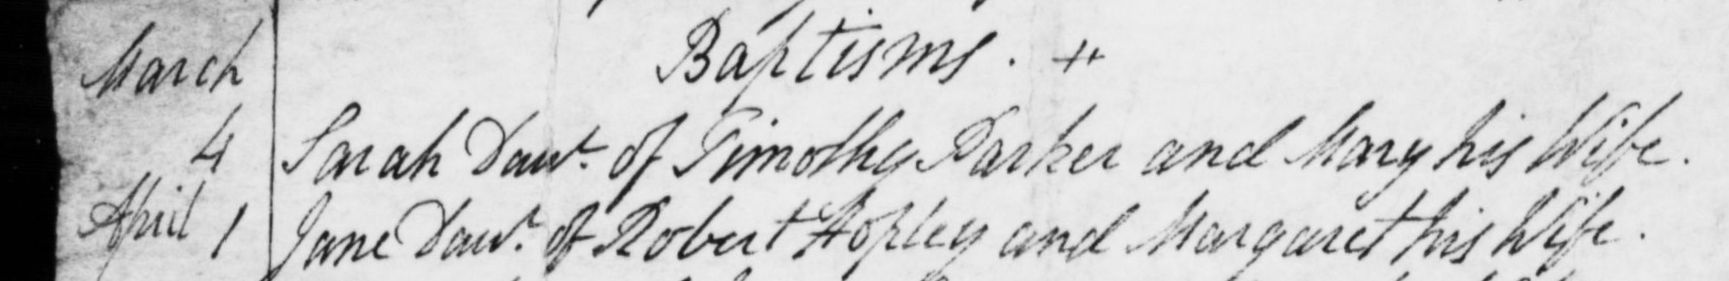 March Baptisms.
4 Sarah Daur. of Timothy Parker and Mary his Wife.
April 1 Jane Daur. of Robert Hopley and Margaret his Wife.